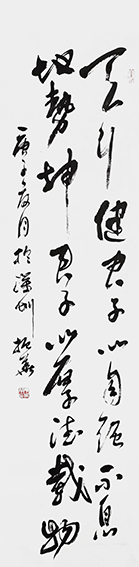 天行健君子以自强不息
地勢坤君子以厚德載物
庚子年夏月於深圳振華